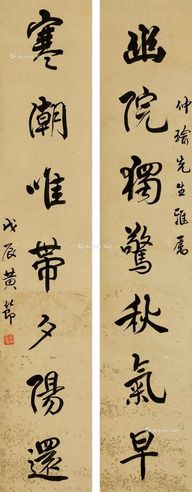 仲瑜先生雅属
幽院獨驚秋氣早
寒潮唯帶夕陽還
戊辰黄節